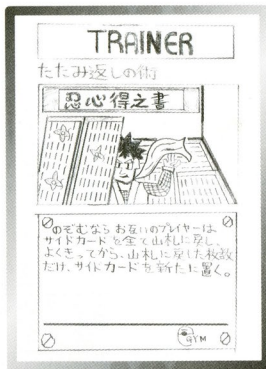 TRAINER
たたみ返しの術
忍心得之書
のぞむなら お互いのプレイヤーは
サイドカードを全て山札に戻し、
よくきってから、山札に戻した枚数
だけ、サイドカードを新たに置く。
GYM